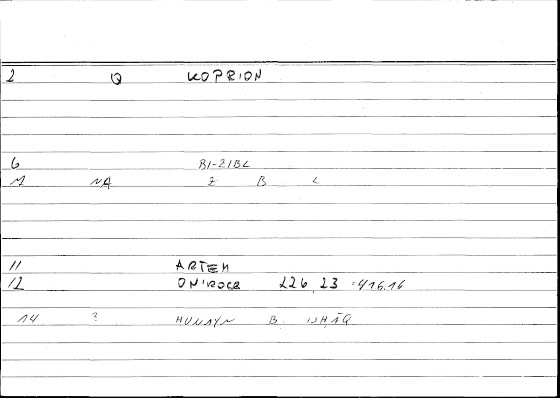 2 Q KOPRION
6 BI-ZIBL
M NA Z B L
11 ARTEM
12 ONIROCR 226,23 =416.16
14 ? HUNAYN B. ISHĀQ